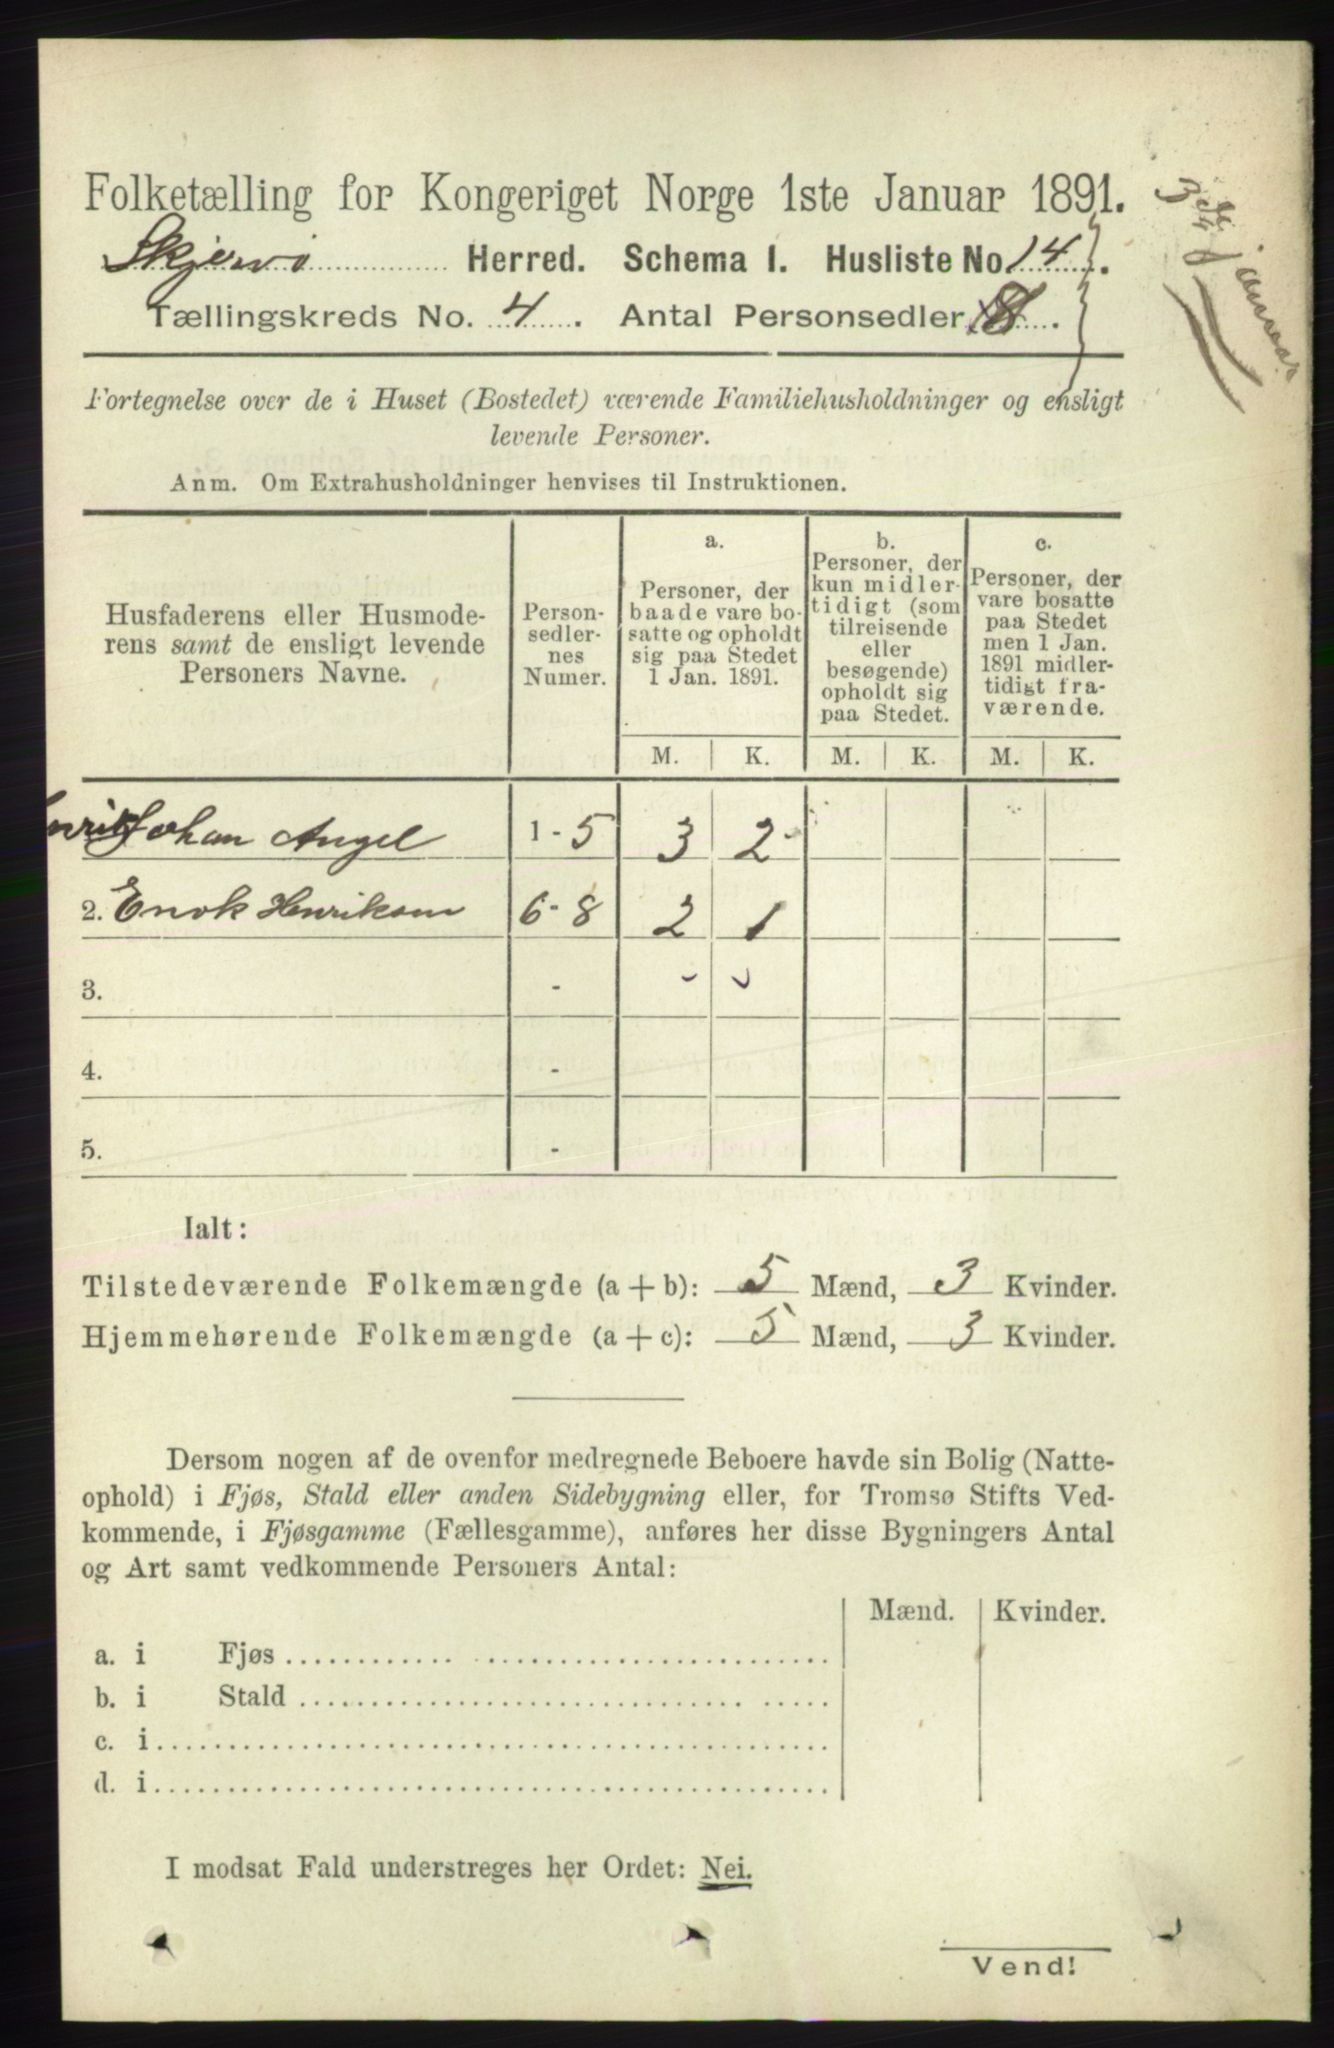 Folketælling for Kongeriget Norge 1ste Januar 1891.
Skjervø Herred. Schema 1. Husliste No 14.
Tællingskreds No. 4. Antal Personsedler 8.
3die januar
Fortegnelse over de i Huset (Bostedet) værende Familiehusholdninger og ensligt
levende Personer.
Anm. Om Extrahusholdninger henvises til Instruktionen.
Husfaderens eller Husmode-
rens samt de ensligt levende
Personers Navne.
Person-
sedler-
nes
Numer.
a.
Personer, der
baade vare bo-
satte og opholdt
sig paa Stedet
1 Jan. 1891.
b.
Personer, der
kun midler-
tidigt (som
tilreisende
eller
besøgende)
opholdt sig
paa Stedet.
c.
Personer, der
vare bosatte
paa Stedet
men 1 Jan.
1891 midler-
tidigt fra-
værende.
M. K. M. K. M. K.
Johan Angel 1 - 5 3 2
2. Enok Henriksen 6 - 8 2 1
3. -
4. -
5. -
Ialt:
Tilstedeværende Folkemængde (a + b): 5 Mænd, 3 Kvinder.
Hjemmehørende Folkemængde (a + c): 5 Mænd, 3 Kvinder.
Dersom nogen af de ovenfor medregnede Beboere havde sin Bolig (Natte-
ophold) i Fjøs, Stald eller anden Sidebygning eller, for Tromsø Stifts Ved-
kommende, i Fjøsgamme (Fællesgamme), anføres her disse Bygningers Antal
og Art samt vedkommende Personers Antal:
Mænd. Kvinder.
a. i Fjøs
b. i Stald
c. i
d. i
I modsat Fald understreges her Ordet: Nei.
Vend!